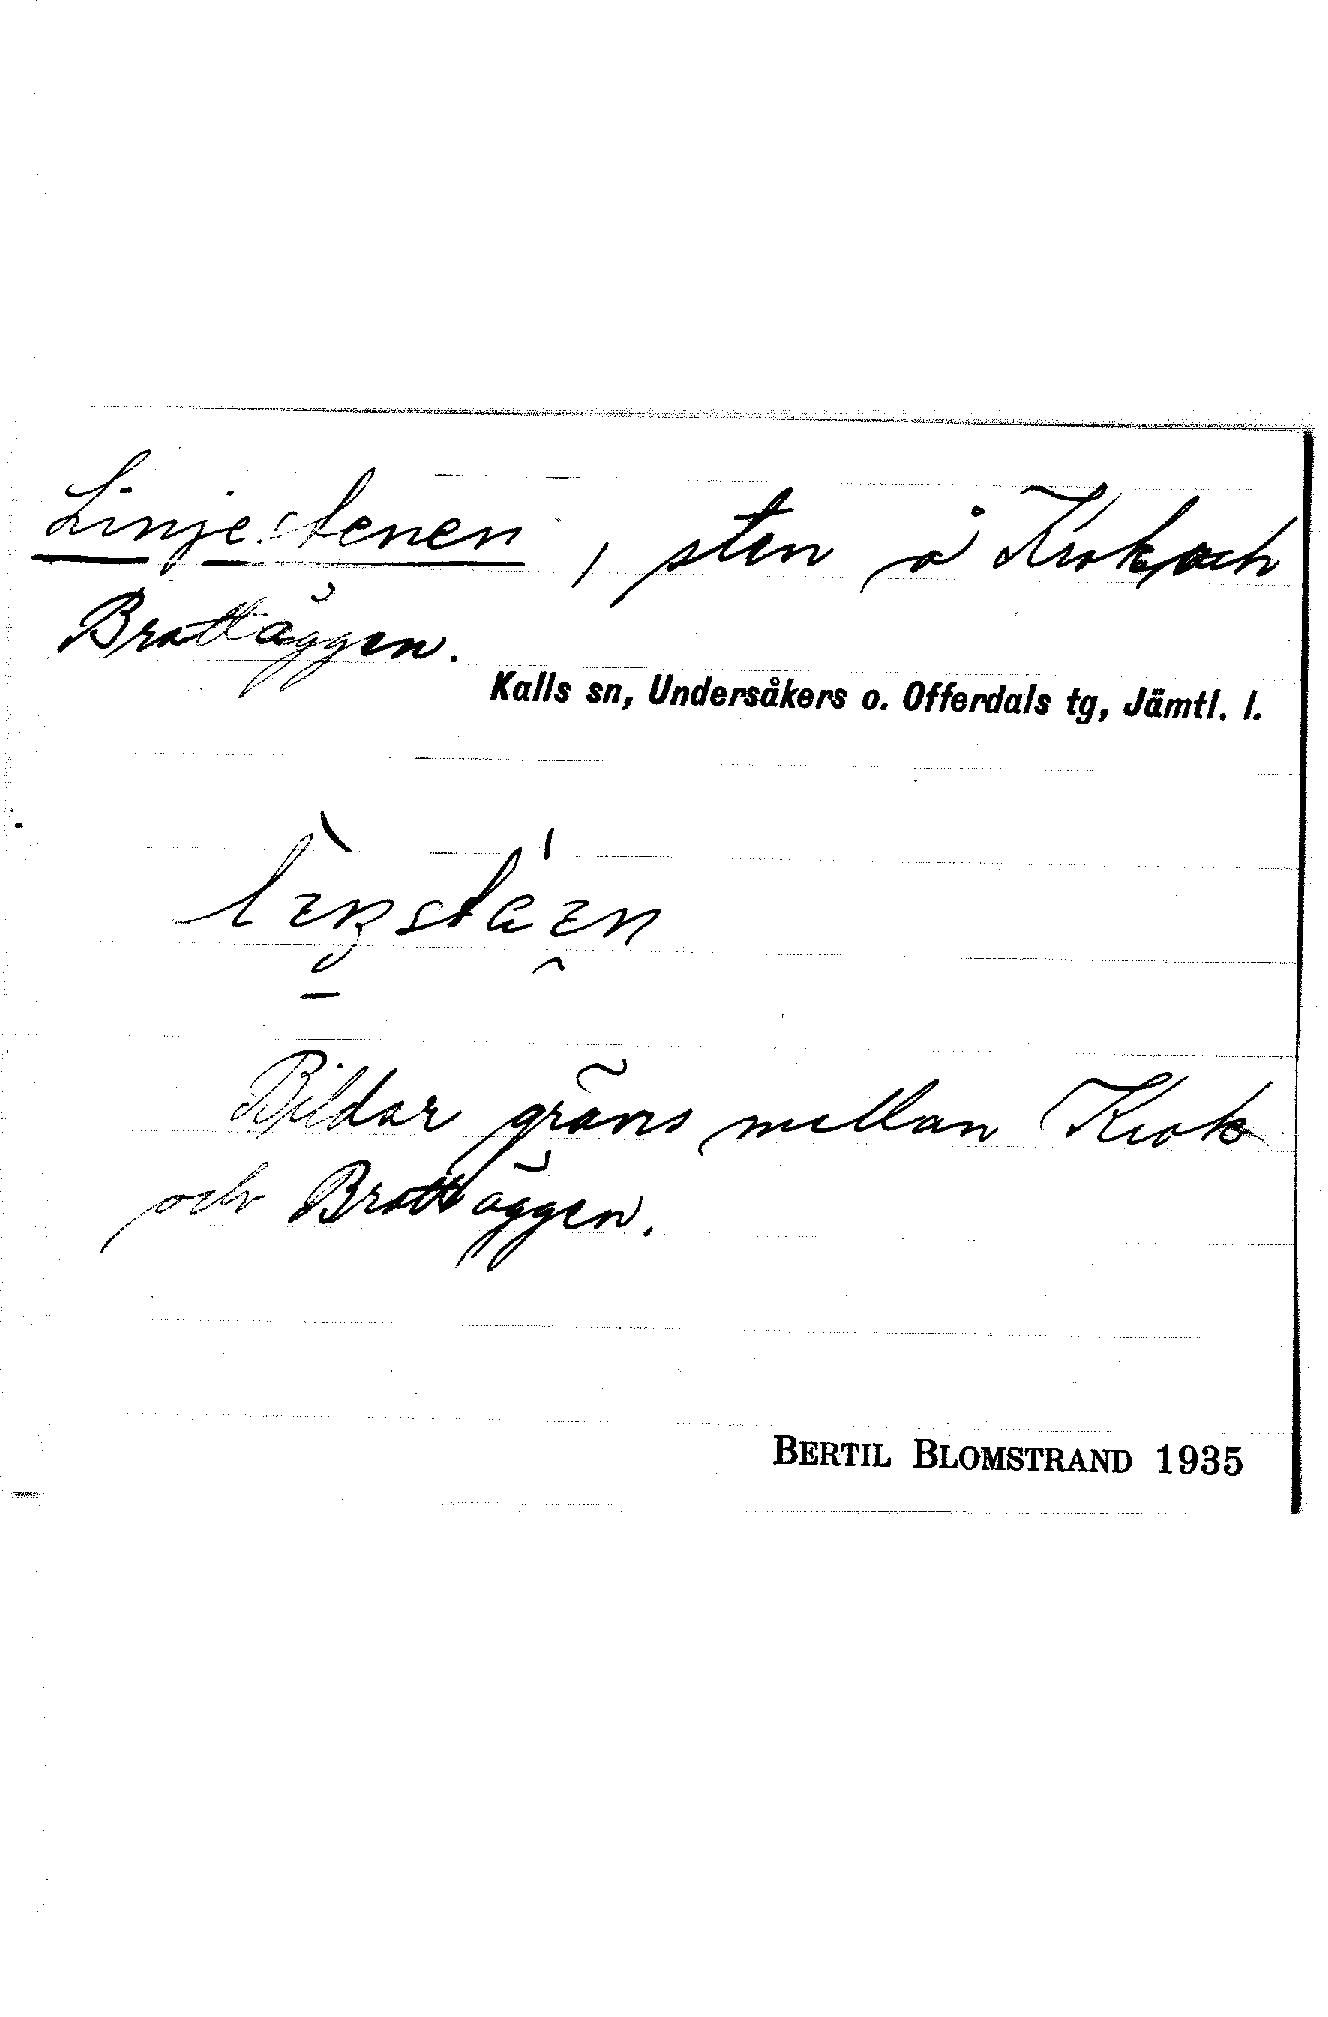 Linjestenen, sten å Krok och
Brattäggen.
Kalls sn, Undersåkers o. Offerdals tg, Jämtl. l.
Bildar gräns mellan Krok
och Brattäggen.
BERTIL BLOMSTRAND 1935